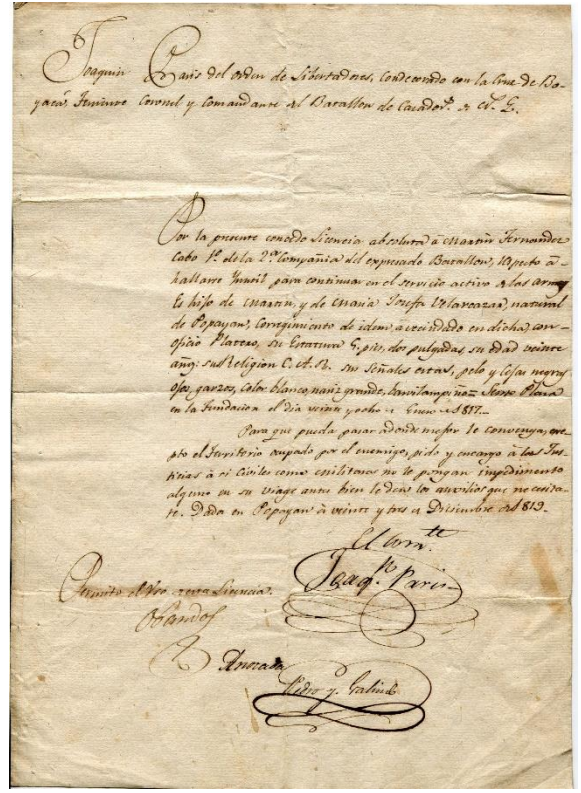 Joaquin Paris del orden de Libertadores, condecorado con la Cruz de Bo-
yacá, Teniente Coronel y Comandante del Batallon de Cazador.s de
Por la presente concedo Licencia absoluta á Martin Fernandez
Cabo 1º de la 2ª Compañia del expresado Batallon, respecto á
hallarse Ynutil para continuar en el servicio activo de las armas
Es hijo de Martin, y de Maria Josefa Velarcazar, natural
de Popayan, Corregimiento de idem, avecindado en dicha con
oficio Platero, su Estatura 5. pies, dos pulgadas, su edad veinte
años: su Religion C. A. R. sus señales estas, pelo y cejas negros
ojos garzos, color blanco, nariz grande, barvilampiño = Sento Plaza
en la Fundacion el dia veinte y ocho de Enero de 1817.
Para que pueda pasar adonde mejor le convenga, exep-
pto el Territorio ocupado por el enemigo, pido y encargo á las Jus-
ticias á si Civiles como militares no le pongan impedimento
alguno en su viage antes bien le den los auvilios que necesita-
re. Dada en Popayan à veinte y tres de Diciembre de 1819.
El Com.te
Joaq.n Paris
Permito el Uso de esta Licencia.
Obando
Anotada
Pedro Galindo